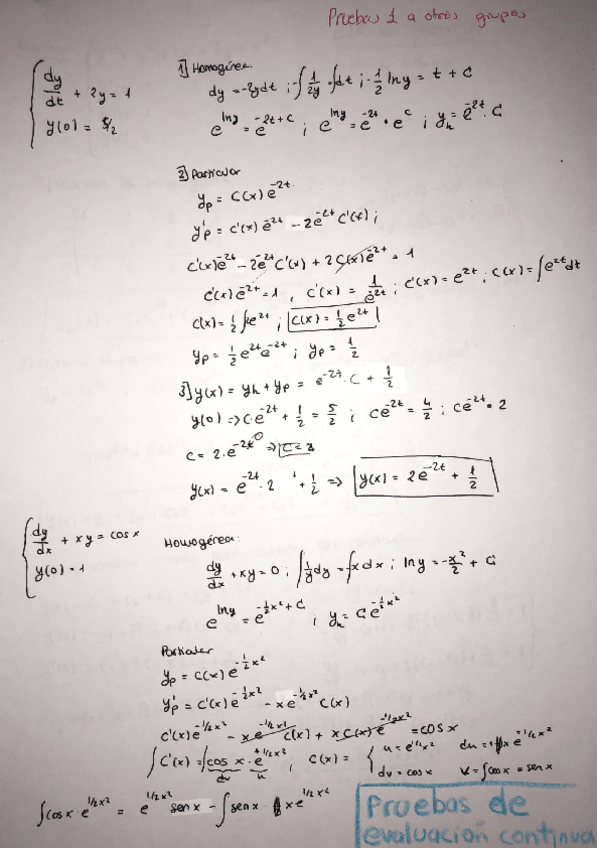 Pruebas 1 a otros grupos
dy/dt + 2y = 1
y(0) = 5/2
1) Homogénea
dy = -2y dt ; -∫ 1/2y = ∫dt ; -1/2 ln y = t + C
e^lny = e^-2t+C ; e^lny = e^-2t · e^C ; y_h = e^-2t · C
2) Particular
y_p = C(x) e^-2t
y'_p = C'(x) e^-2t - 2e^-2t C'(x) ;
C'(x) e^-2t - 2e^-2t C'(x) + 2 C(x) e^-2t = 1
C'(x) e^-2t = 1 , C'(x) = 1/e^-2t ; C'(x) = e^2t ; C(x) = ∫e^2t dt
C(x) = 1/2 ∫ e^2t ; C(x) = 1/2 e^2t
y_p = 1/2 e^2t e^-2t ; y_p = 1/2
3) y(x) = y_h + y_p = e^-2t · C + 1/2
y(0) => C · e^-2t + 1/2 = 5/2 ; Ce^-2t = 4/2 ; Ce^-2t = 2
C = 2 · e^-2t 0 => C =
y(x) = e^-2t · 2 + 1/2 => y(x) = 2e^-2t + 1/2
dy/dx + xy = cos x
y(0) = 1
Homogénea:
dy/dx + xy = 0 ; ∫ 1/y dy = ∫x dx ; ln y = -x²/2 + C
e^lny = e^-1/2x² + C ; y_h = C e^-1/2x²
Particular
y_p = C(x) e^-1/2x²
y'_p = C'(x) e^-1/2x² - x e^-1/2x² C(x)
C'(x) e^-1/2x² - x e^-1/2x² C(x) + x C(x) e^-1/2x² = cos x
∫ C'(x) = ∫ cos x · e^+1/2x² ; C(x) = { u = e^1/2x² du = x e^+1/2x²
dv u dv = cos x v = ∫cos x = sen x
∫cos x · e^1/2x² = e^1/2x² sen x - ∫ sen x · x e^1/2x²
Pruebas de
evaluación continua